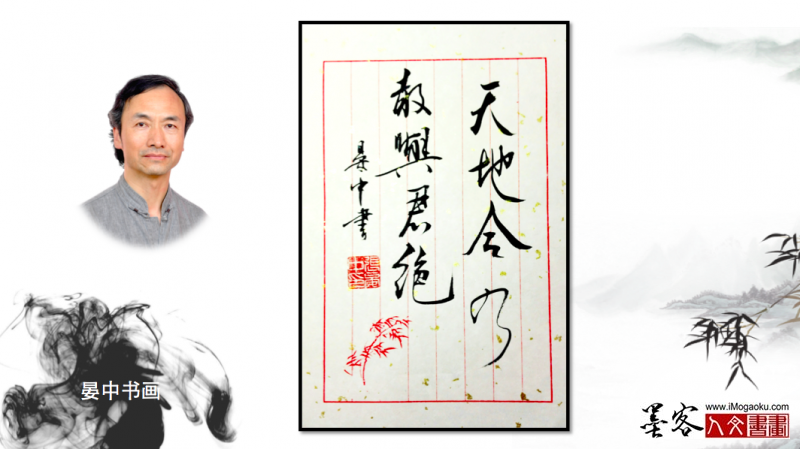 天地合乃
敢與君絕
晏中書
晏中书画
墨客
www.iMogaoku.com
人文書畫